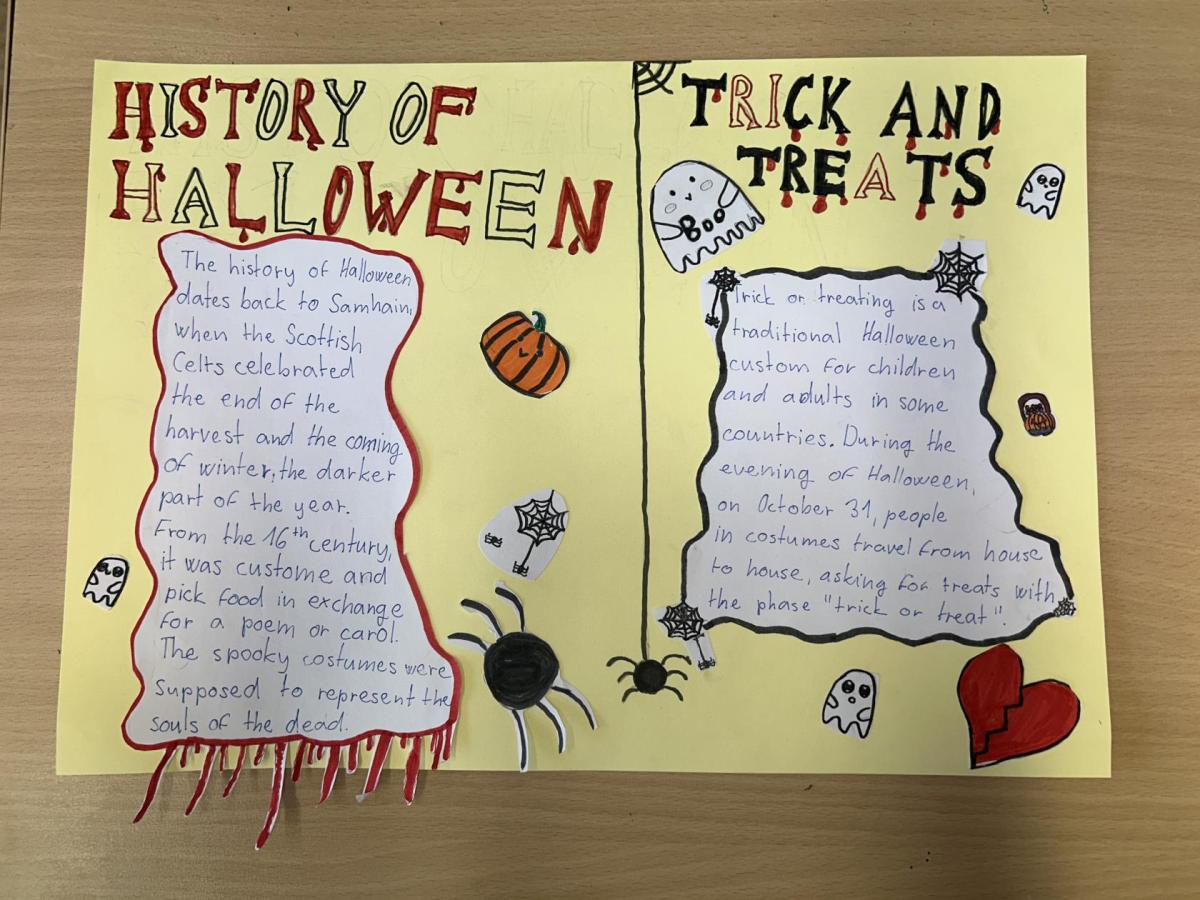 HISTORY OF
HALLOWEEN
The history of Halloween
dates back to Samhain,
when the Scottish
Celts celebrated
the end of the
harvest and the coming
of winter, the darker
part of the year.
From the 16th century,
it was custome and
pick food in exchange
for a poem or carol.
The spooky costumes were
supposed to represent the
souls of the dead.
TRICK AND
TREATS
BOO
Trick or treating is a
traditional Halloween
custom for children
and adults in some
countries. During the
evening of Halloween,
on October 31, people
in costumes travel from house
to house, asking for treats with
the phase "trick or treat".